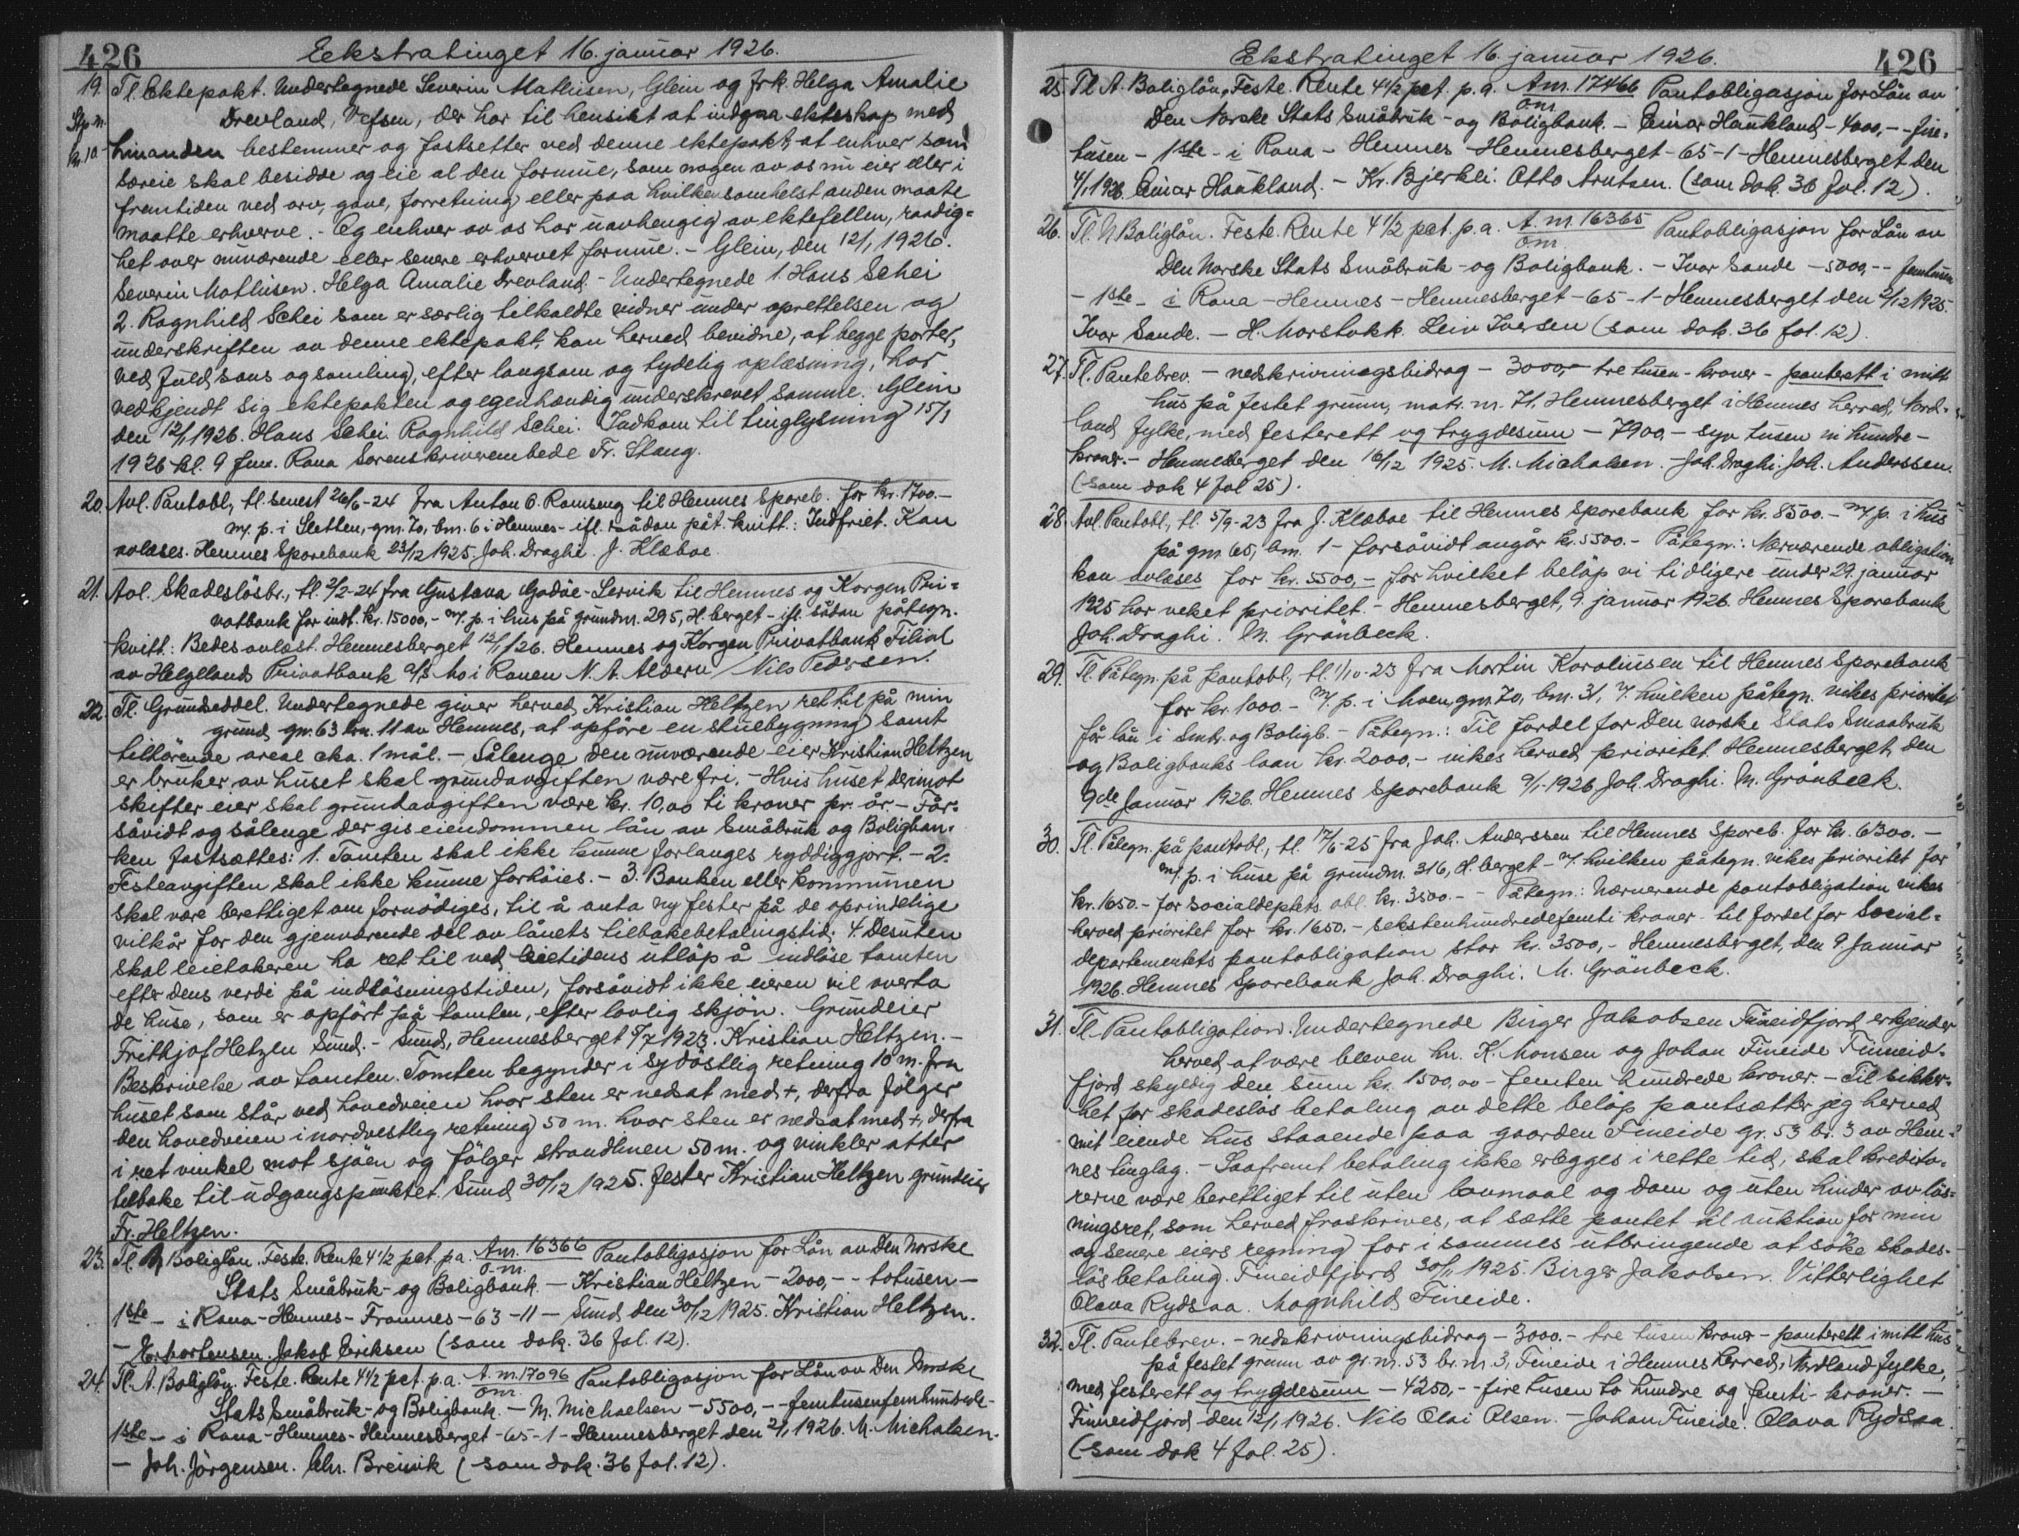 426
Ekstratinget 16. januar 1926.
19. Tl. Ektepakt. Undertegnede Severin Mathisen, Glein og frk. Helga Amalie
Stp.m. Drevland, Vefsen, der har til hensikt at indgaa ekteskap med
kr. 10.- hinanden bestemmer og fastsetter ved denne ektepakt, at enhver som
særeie skal besidde og eie al den formue, som nogen av os nu eier eller i
fremtiden ved arv, gave, forretning eller paa hvilkensomhelst anden maate
maatte erhverve. - Og enhver av os har uavhengig av ektefellen, raadig=
het over nuværende eller senere erhvervet formue. - Glein, den 12/1 1926.
Severin Mathisen. Helga Amalie Drevland - Undertegnede 1. Hans Schei
2. Ragnhild Schei som er særlig tilkaldte vidner under oprettelsen og
underskriften av denne ektepakt, kan herved bevidne, at begge parter,
ved fuld sans og samling, efter langsom og tydelig oplæsning, har
vedkjendt sig ektepakten og egenhændig underskrevet samme. Glein
den 12/1 1926. Hans Schei. Ragnhild Schei. Indkom til tinglysning 15/1
1926 kl. 9 fm. Rana Sorenskriverembede Fr. Stang.
20. Avl. Pantobl., tl. senest 26/6-24 fra Anton O. Ramseng til Hemnes Spareb. for kr. 1700.-
m/ p. i Sletten, gm. 70, bm. 6 i Hemnes - ifl. sådan påt. kvitt: Indfriet. Kan
avlæses. Hemnes Sparebank 23/12 1925. Joh. Draghi. J. Klæboe.
21. Avl. Skadeslösbr., tl. 2/2-24 fra Gustava Godöe-Lervik til Hemnes og Korgen Pri=
vatbank for indt. kr. 15000,- m/ p. i hus på grundm. 295, H.berget - ifl. sådan påtegn.
kvitt.: Bedes avlæst. Hemnesberget 12/1/26. Hemnes og Korgen Privatbank Filial
av Helgelands Privatbank a/s Mo i Ranen N. A. Aldern / Nils Pedersen.
22. Tl. Grundseddel. Undertegnede giver herved Kristian Heltzen ret til på min
grund gn. 63 bn. 11 av Hemnes, at opföre en stuebygning samt
tilhörende areal cka. 1 mål. - Sålenge den nuværende eier Kristian Heltzen
er bruker av huset skal grundavgiften være fri. - Hvis huset derimot
skifter eier skal grundavgiften være kr. 10,00 ti kroner pr. år - For=
såvidt og sålenge der gis eiendommen lån av Småbruk og Boligban=
ken fastsættes: 1. Tomten skal ikke kunne forlanges ryddiggjort. - 2.
Festeavgiften skal ikke kunne forhöies. - 3. Banken eller kommunen
skal være berettiget om fornödiges, til å anta ny fester på de oprindelige
vilkår for den gjenværende del av lånets tilbakebetalingstid. 4. Desuten
skal leietakeren ha ret til ved leietidens utlöp å indlöse tomten
efter dens verdi på indlösningstiden, forsåvidt ikke eieren vil overta
de huse, som er opfört på tomten, efter lovlig skjön. Grundeier
Frithjof Hetzen Sund. - Sund, Hemnesberget 5/7 1923. Kristian Heltzen. -
Beskrivelse av tomten. Tomten begynder i sydöstlig retning 10 m. fra
huset som står ved hovedveien hvor sten er nedsat med +, derfra fölger
den hovedveien i nordvestlig retning 50 m. hvor sten er nedsat med +, derfra
i ret vinkel mot sjöen og fölger strandlinen 50 m. og vinkler atter
tilbake til udgangspunktet. Sund 30/12 1925. fester Kristian Heltzen grundeier
Fr. Heltzen.
23. Tl. A Boliglån. Feste. Rente 4 1/2 pct. p.a. A.m. 16366 / o.m. Pantobligasjon for Lån av Den Norske
Stats Småbruk- og Boligbank - Kristian Heltzen - 2000,- - totusen -
1ste - i Rana - Hemnes - Framnes - 63 - 11 - Sund den 30/12 1925. Kristian Heltzen.
- Jakob Eriksen (som dok. 36 fol. 12).
24. Tl. A. Boliglån. Feste. Rente 4 1/2 pct. p.a. A.m. 17096 / o.m. Pantobligasjon for Lån av Den Norske
Stats Småbruk- og Boligbank. - M. Michaelsen - 5500,- - femtusenfemhundrede -
1ste - i Rana - Hemnes - Hemnesberget - 65 - 1 - Hemnesberget den 2/1 1926. M. Michalsen -
- Joh. Jörgensen. Chr. Breivik (-som dok. 36 fol. 12).
Ekstratinget 16. januar 1926.
426
25. Tl. A. Boliglån. Feste. Rente 4 1/2 pct. p.a. A.m. 17466 / o.m. Pantobligasjon for Lån av
Den Norske Stats Småbruk- og Boligbank. - Einar Haukland - 4000,- - fire=
tusen - 1ste - i Rana - Hemnes - Hemnesberget - 65 - 1 - Hemnesberget den
4/1 1926. Einar Haukland. - Kr. Bjerkli. Otto Arntsen. (som dok. 36 fol. 12).
26. Tl. A Boliglån. Feste. Rente 4 1/2 pct. p.a. A.m. 16365 / o.m. Pantobligasjon for Lån av
Den Norske Stats Småbruk- og Boligbank. - Ivar Sande - 5000,- - femtusen
- 1ste - i Rana - Hemnes - Hemnesberget - 65 - 1 - Hemnesberget den 2/12 1925.
Ivar Sande. - H. Marstokk. Leiv Iversen (som dok. 36 fol. 12).
27. Tl. Pantebrev. - nedskrivningsbidrag - 3000,- tre tusen - kroner - panterett i mitt
hus på festet grunn, matr. nr. 71, Hemnesberget i Hemnes herred, Nord=
land fylke, med festerett og trygdesum - 7900,- syv tusen ni hundre -
kroner. - Hemnesberget den 16/12 1925. M. Michalsen. - Joh. Draghi. Joh. Anderssen.
(-som dok 4 fol 25).
28. Avl. Pantobl., tl. 5/9-23 fra J. Klæboe til Hemnes Sparebank for kr. 8500.- m/ p. i hus
på gm 65, bm. 1 - forsåvidt angår kr. 5500.- Påtegn.: Nærværende obligation
kan avlæses for kr. 5500,- for hvilket belöp vi tidligere under 29. januar
1925 har veket prioritet. - Hemnesberget, 9. januar 1926. Hemnes Sparebank
Joh. Draghi. M. Grönbeck.
29. Tl. Påtegn. på pantobl., tl. 1/10-23 fra Martin Karoliusen til Hemnes Sparebank
for kr. 1000.- m/ p. i Moen gm. 70, bm. 31, v/ hvilken påtegn. vikes prioritet
for lån i Smbr. og Boligb. - Påtegn.: Til fordel for Den norske Stats Smaabruk
og Boligbanks laan kr. 2000.- vikes herved prioritet. Hemnesberget, den
9de Januar 1926. Hemnes Sparebank 9/1-1926 Joh. Draghi. M. Grönbeck.
30. Tl. Påtegn. på pantobl., tl. 17/6-25 fra Joh. Anderssen til Hemnes Spareb. for kr. 6300.-
m/ p. i huse på grundm. 316, H.berget - v/ hvilken påtegn. vikes prioritet for
kr. 1650.- for socialdeptets obl. kr. 3500.- - Påtegn.: Nærværende pantobligation vikes
herved prioritet for kr. 1650.- sekstenhundredefemti kroner - til fordel for Social=
departementets pantobligation stor kr. 3500,- Hemnesberget, den 9. Januar
1926. Hemnes Sparebank Joh. Draghi. M. Grönbeck.
31. Tl. Pantobligation. Undertegnede Birger Jakobsen Finneidfjord erkjender
herved at være bleven hr. K. Monsen og Johan Fineide Finneid=
fjord skyldig den sum kr. 1500,00 - femten hundrede kroner. - Til sikker=
het for skadeslös betaling av dette belöp pantsætter jeg herved
mit eiende hus staaende paa gaarden Fineide gr. 53 br. 3 av Hem=
nes tinglag. - Saafremt betaling ikke erlegges i rette tid, skal kredito=
rerne være berettiget til uten lovmaal og dom og uten hinder av lös=
ningsret, som herved fraskrives, at sætte pantet til auktion for min
og senere eiers regning for i sammes utbringende at söke skades-
lös betaling. Fineidfjord 30/11 1925. Birger Jakobsen. Vitterlighet
Olava Rydsaa. Magnhild Fineide.
32. Tl. Pantebrev. - nedskrivningsbidrag - 3000.- tre tusen kroner - panterett i mitt hus
på festet grunn av gr.nr. 53 br.nr. 3, Fineide i Hemnes herred, Nordland fylke,
med festerett og trygdesum - 4250,- - fire tusen to hundre og femti - kroner. -
Finneidfjord den 12/1 1926. Nils Olai Olsen. - Johan Fineide. Olava Rydsaa.
(-som dok 4 fol. 25).